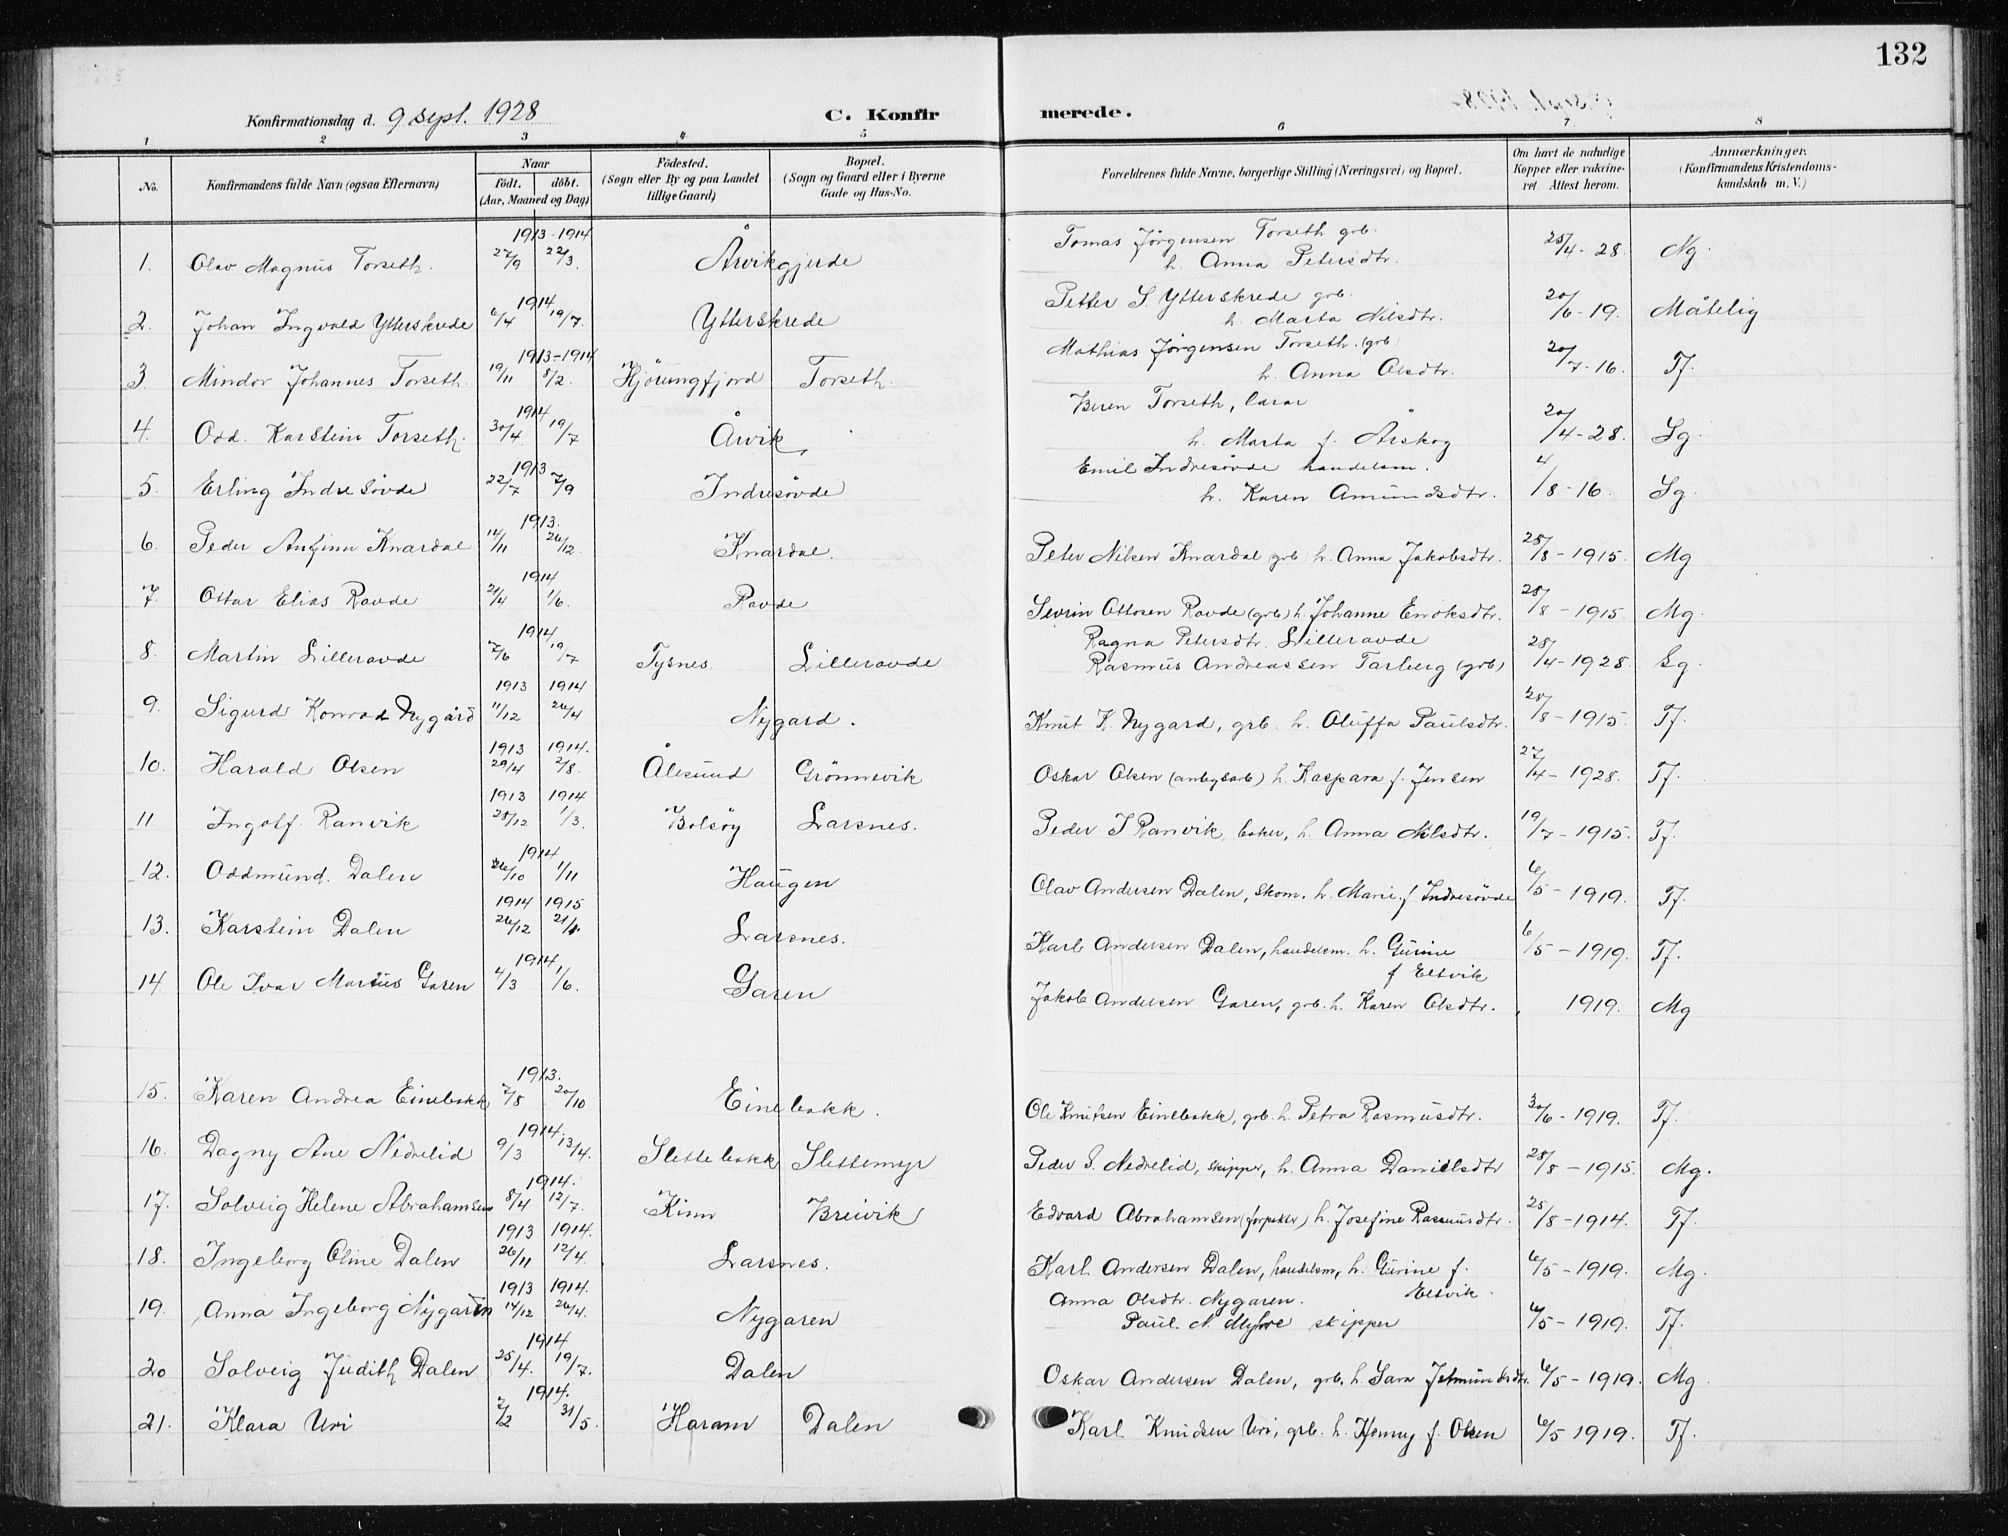 132
Konfirmationsdag d. 9 sept. 1928 C. Konfirmerede.
1 2 3 4 5 6 7 8
No. Konfirmandens fulde Navn (ogsaa Efternavn) Naar født. døbt. (Aar, Maaned og Dag) Fødested. (Sogn eller By og paa Landet tillige Gaard) Bopæl. (Sogn og Gaard eller i Byerne Gade og Hus-No. Forældrenes fulde Navne, borgerlige Stilling (Næringsvei) og Bopæl. Om havt de naturlige Kopper eller vaccineret. Attest herom. Anmærkninger. (Konfirmandens Kristendomskundskab m. V.)
1. Olav Magnus Torseth. 1913-1914 27/9 22/3. Årvikgjerde Tomas Jörgensen Torseth grb. h. Anna Petersdtr. 25/4-28. Ng.
2. Johan Ingvald Ytterskrede 1914 6/4 19/7. Ytterskrede Petter S. Ytterskrede grb. h. Marta Nilsdtr. 20/6-19. Måtelig
3. Mindor Johannes Torseth. 1913-1914 19/11 8/2. Hjörungfjord Torseth. Mathias Jörgensen Torseth. (grb) h. Anna Olsdtr. 20/7-16. Tf.
4. Odd Karstein Torseth. 1914 30/4 19/7 Årvik Torseth, lærar h. Marta f. Årskog 20/4-28. Sg.
5. Erling Indresövde 1913 22/7 7/9 Indresövde Emil Indresövde handelsm. h. Karen Amundsdtr. 4/8-16. Sg.
6. Peder Anfinn Knardal 1913. 14/11 26/12. Knardal. Peter Nilsen Knardal grb h. Anna Jakobsdtr. 28/8-1915. Mg
7. Ottar Elias Ravde 1914 21/4 1/6. Ravde Sevrin Ottosen Ravde (grb) h. Johanne Enoksdtr. 28/8-1915. Mg.
8. Martin Lilleravde 1914 7/6 19/7 Tysnes. Lilleravde Ragna Petersdtr. Lilleravde Rasmus Andreassen Tarberg (grb) 28/4-1928. Sg.
9. Sigurd Konrad Nygård 1913 1914 11/12 26/4 Nygard. Knut K. Nygard, grb. h. Oluffa Paulsdtr. 28/8-1915. Tf.
10. Harald Olsen 1913 1914. 29/4 2/8. Ålesund Grönnevik Oskar Olsen (anlegsarb) h. Kaspara f. Jensen 27/4-1928. Tf.
11 Ingolf Ranvik 1913 1914 28/12 1/3. Bolsöy Larsnes. Peder J Ranvik, baker, h. Anna Nilsdtr. 19/7-1915. Tf.
12. Oddmund Dalen 1914 26/10 1/11 Haugen Olav Andersen Dalen, skom. h. Marie f Indresövde 6/5-1919. Tf.
13. Karstein Dalen 1914 1915 26/12 21/1. Larsnes. Karl Andersen Dalen, handelsm. h. Gurine f Eltvik 6/5-1919. Tf.
14. Ole Ivar Garen 1914 4/3 1/6. Garen Jakob Andersen Garen, grb. h. Karen Olsdtr. 1919. Mg
15. Karen Andrea Einebakk 1913. 7/8 20/10 Einebakk. Ole Knutsen Einebakk, grb. h. Petra Rasmusdtr. 30/6-1919. Tf.
16. Dagny Ane Nedrelid 1914. 9/3 13/4. Slettebakk Slettemyr Peder S. Nedrelid, skipper, h. Anna Danielsdtr 28/8-1915. Mg.
17. Solveig Helene Abrahamsen 1914. 8/4 12/7. Kinn Breivik Edvard Abrahamsen (forpakter) h. Josefine Rasmusdtr. 25/8-1914. Tf.
18. Ingeborg Oline Dalen 1913 1914. 26/11 12/4. Larsnes. Karl Andersen Dalen, handelsm, h. Gurine f. Eltvik. 6/5-1919. Mg.
19. Anna Ingeborg Nygaren 1913 1914. 14/12 26/4. Nygaren Anna Olsdtr. Nygaren. Paul N. skipper 6/5-1919. Tf.
20 Solveig Judith Dalen 1914 25/4. 19/7. Dalen Oskar Andersen Dalen, grb. h. Sara 6/5-1919. Mg
21. Klara Uri 1914. 2/2 31/5. Haram Dalen Karl Knudsen Uri, grb. h. Henny f. Olsen 6/5 1919. Tf.